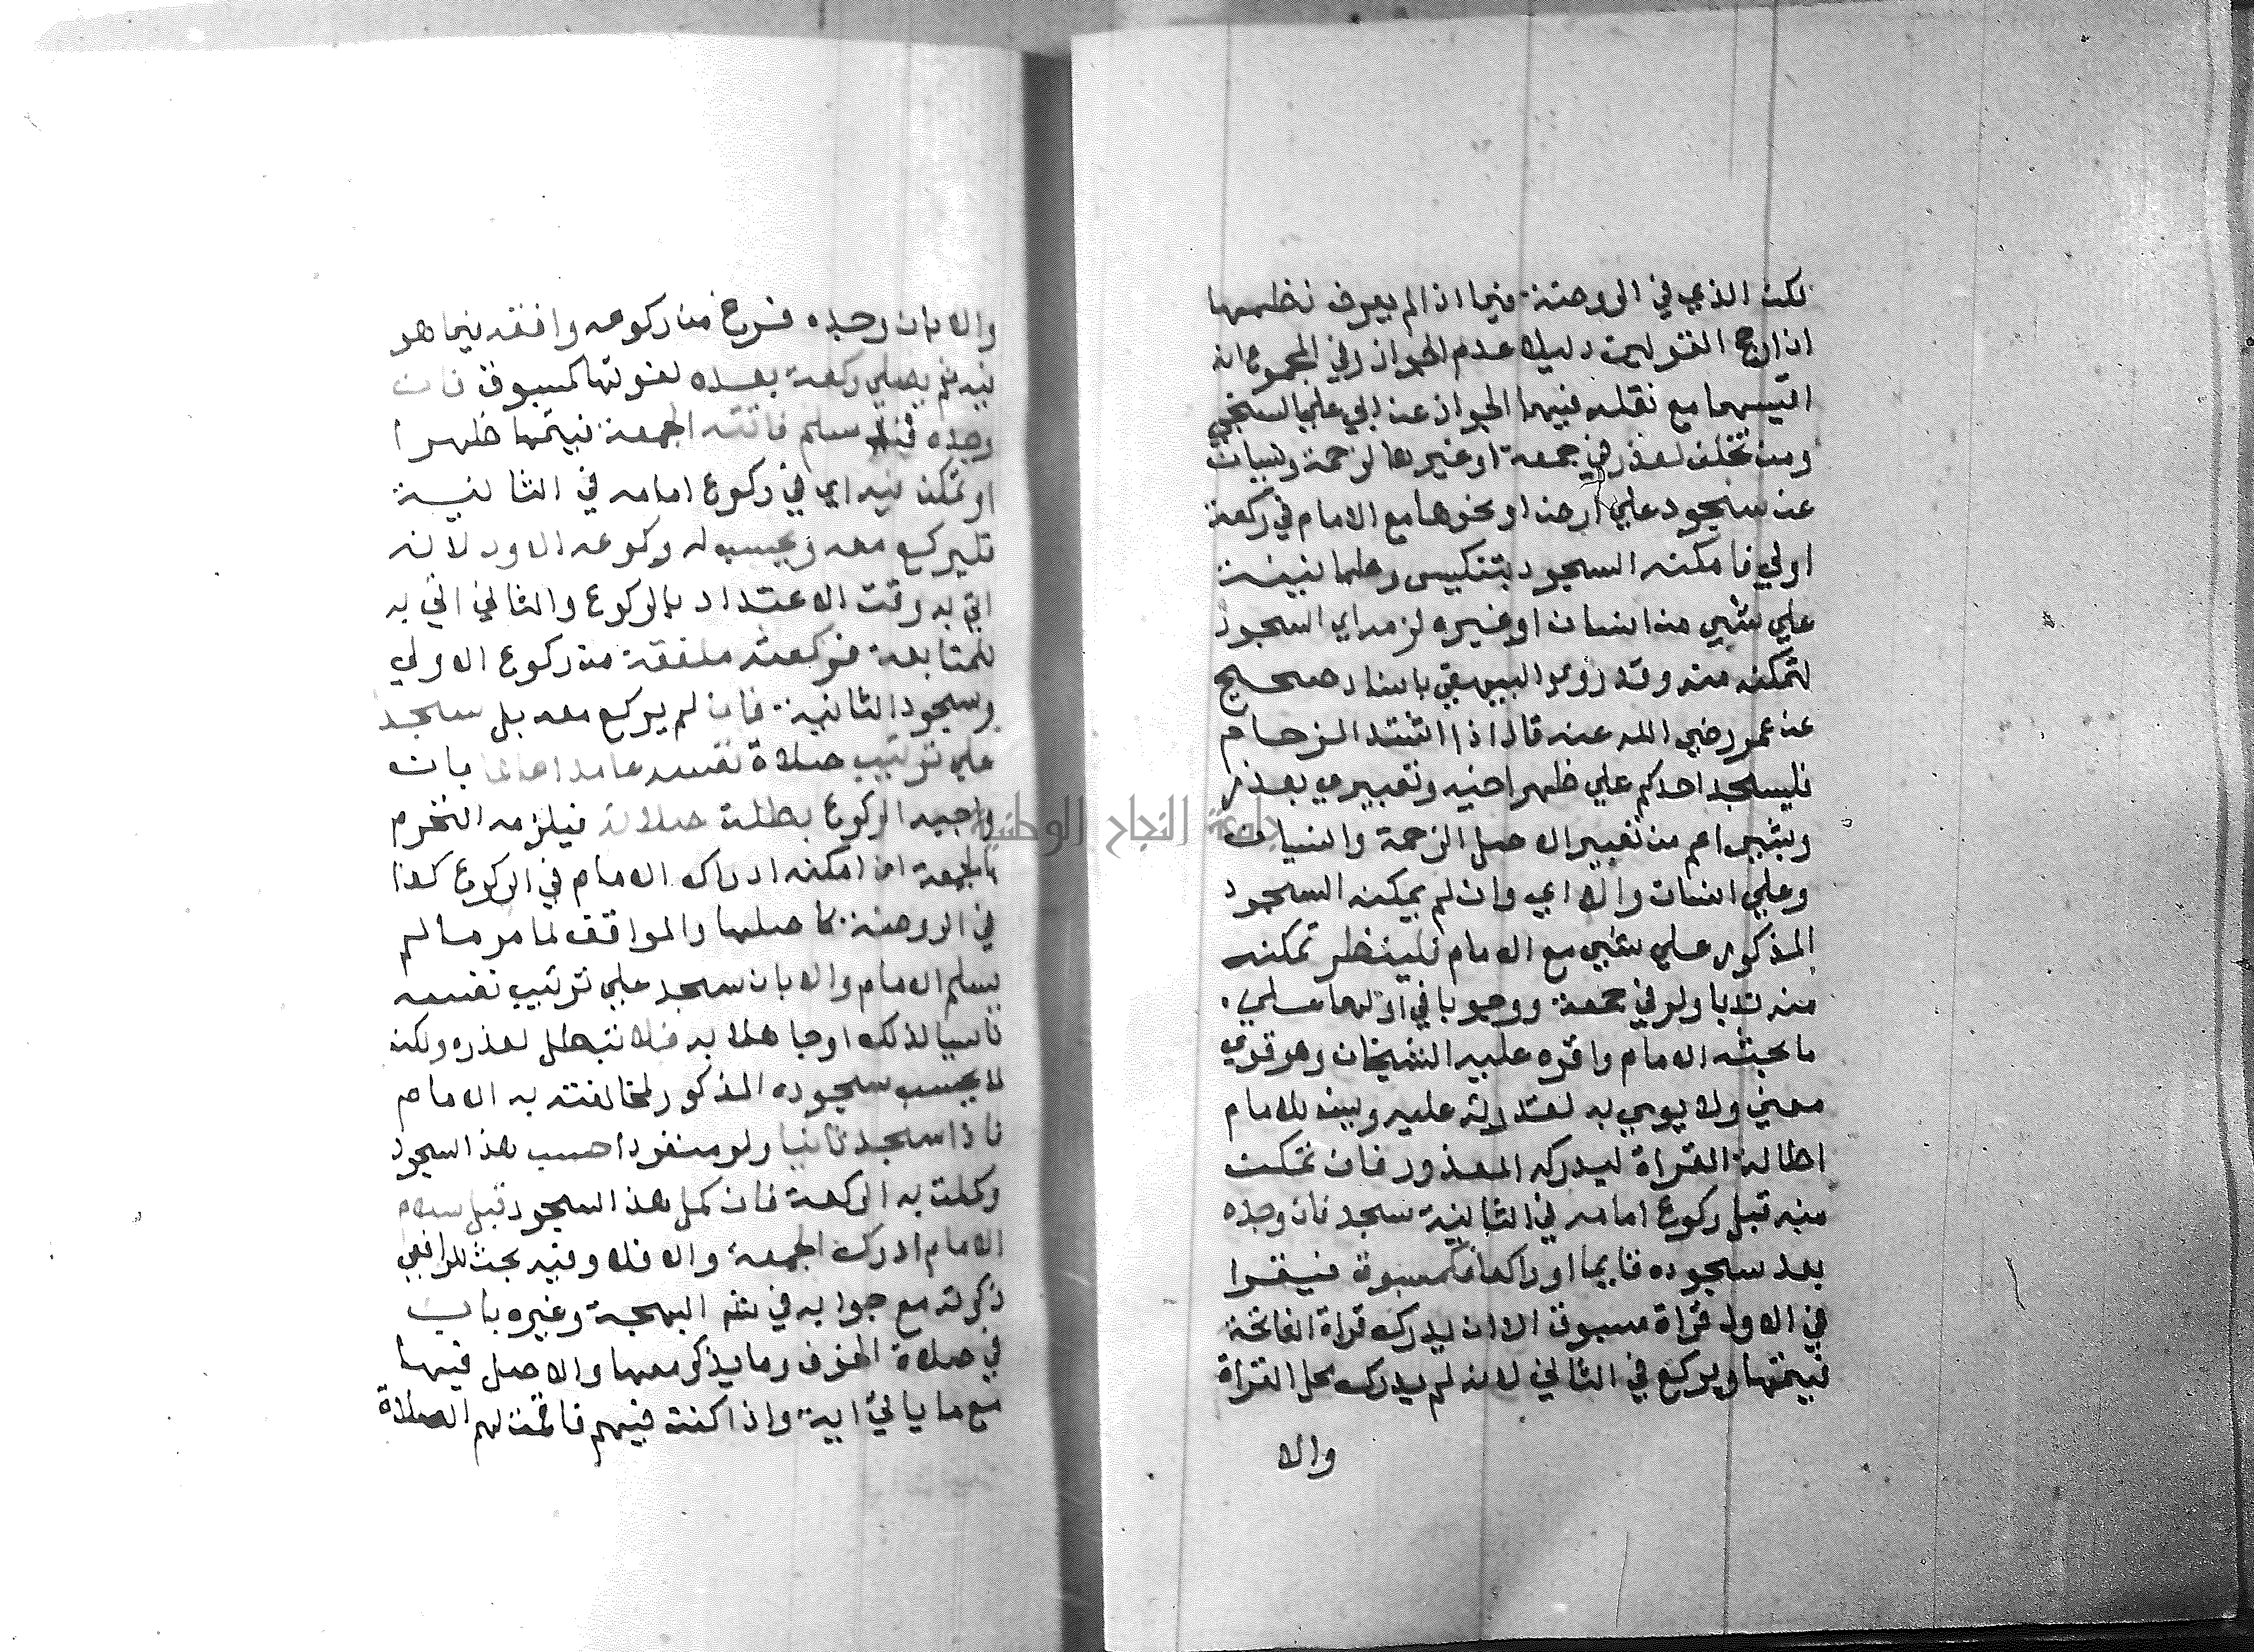 لكن الذي في الروضة فيما اذا لم يعرف نظمها
ان ارجح القولين دليلا عدم الجواز وفي المجموع انه
اقيسهما مع نقله فيهما الجواز عن ابي علي السنجي
ومن تخلف لعذر في جمعة او غيرها لزحمة ونسيان
عن سجود علي ارض او نحوها مع الامام في ركعة
اولي فامكنه السجود بتنكيس وطمانينة
علي شيي من انسان او غيره لزمه اي السجود
لتمكنه منه وقد روي البيهقي باسناد صحيح
عن عمر رضي الله عنه قال اذا اشتد الزحام
فليسجد احدكم علي ظهر اخيه وتعبيري بعذر
وبشيي اعم من تعبير الاصل الزحمة والنسيان
وعلي انسان والا اي وان لم يمكنه السجود
المذكور علي شيي مع الامام فلينتظر تمكنه
منه ندبا ولو في جمعة ووجوبا في اولها علي
ما بحثه الامام واقره عليه الشيخان وهو قوي
معني ولا يومي به لقدرته عليه ويسن للامام
اطالة القراة ليدركه المعذور فان تمكن
منه قبل ركوع امامه في الثانية سجد فان وجده
بعد سجوده قايما او راكعا فكمسبوق فيقرا
في الاول قراة مسبوق الا ان يدرك قراة الفاتحة
فيتمها ويركع في الثاني لانه لم يدرك محل القراة
والا
والا بان وجده فرغ من ركوعه وافقه فيما هو
فيه ثم يصلي ركعة بعده لفوتها كمسبوق فان
وجده قد سلم فاتته الجمعة فيتمها ظهرا
او تمكن فيه اي في ركوع امامه في الثانية
فليركع معه ويحسب له ركوعه الاول لانه
اتي به وقت الاعتداد بالركوع والثاني اتي به
للمتابعة فركعته ملفقة من ركوع الاولي
وسجود الثانية فان لم يركع معه بل سجد
علي ترتيب صلاة نفسه عامدا عالما بان
واجبه الركوع بطلت صلاته فيلزمه التحرم
بالجمعة ان امكنه ادراك الامام في الركوع كذا
في الروضة كاصلها والموافق لما مر ما لم
يسلم الامام والا بان سجد علي ترتيب نفسه
ناسيا لذلك او جاهلا به فلا تبطل لعذره ولكن
لا يحسب سجوده المذكور لمخالفته به الامام
فاذا سجد ثانيا ولو منفردا حسب هذا السجود
وكملت به الركعة فان كمل هذا السجود قبل سلام
الامام ادرك الجمعة والا فلا وفيه بحث للرافعي
ذكرته مع جوابه في شرح البهجة وغيره باب
في صلاة الخوف وما يذكر معها والاصل فيها
مع ما ياتي اية واذا كنت فيهم فاقمت لهم الصلاة
جامعة النجاح الوطنية